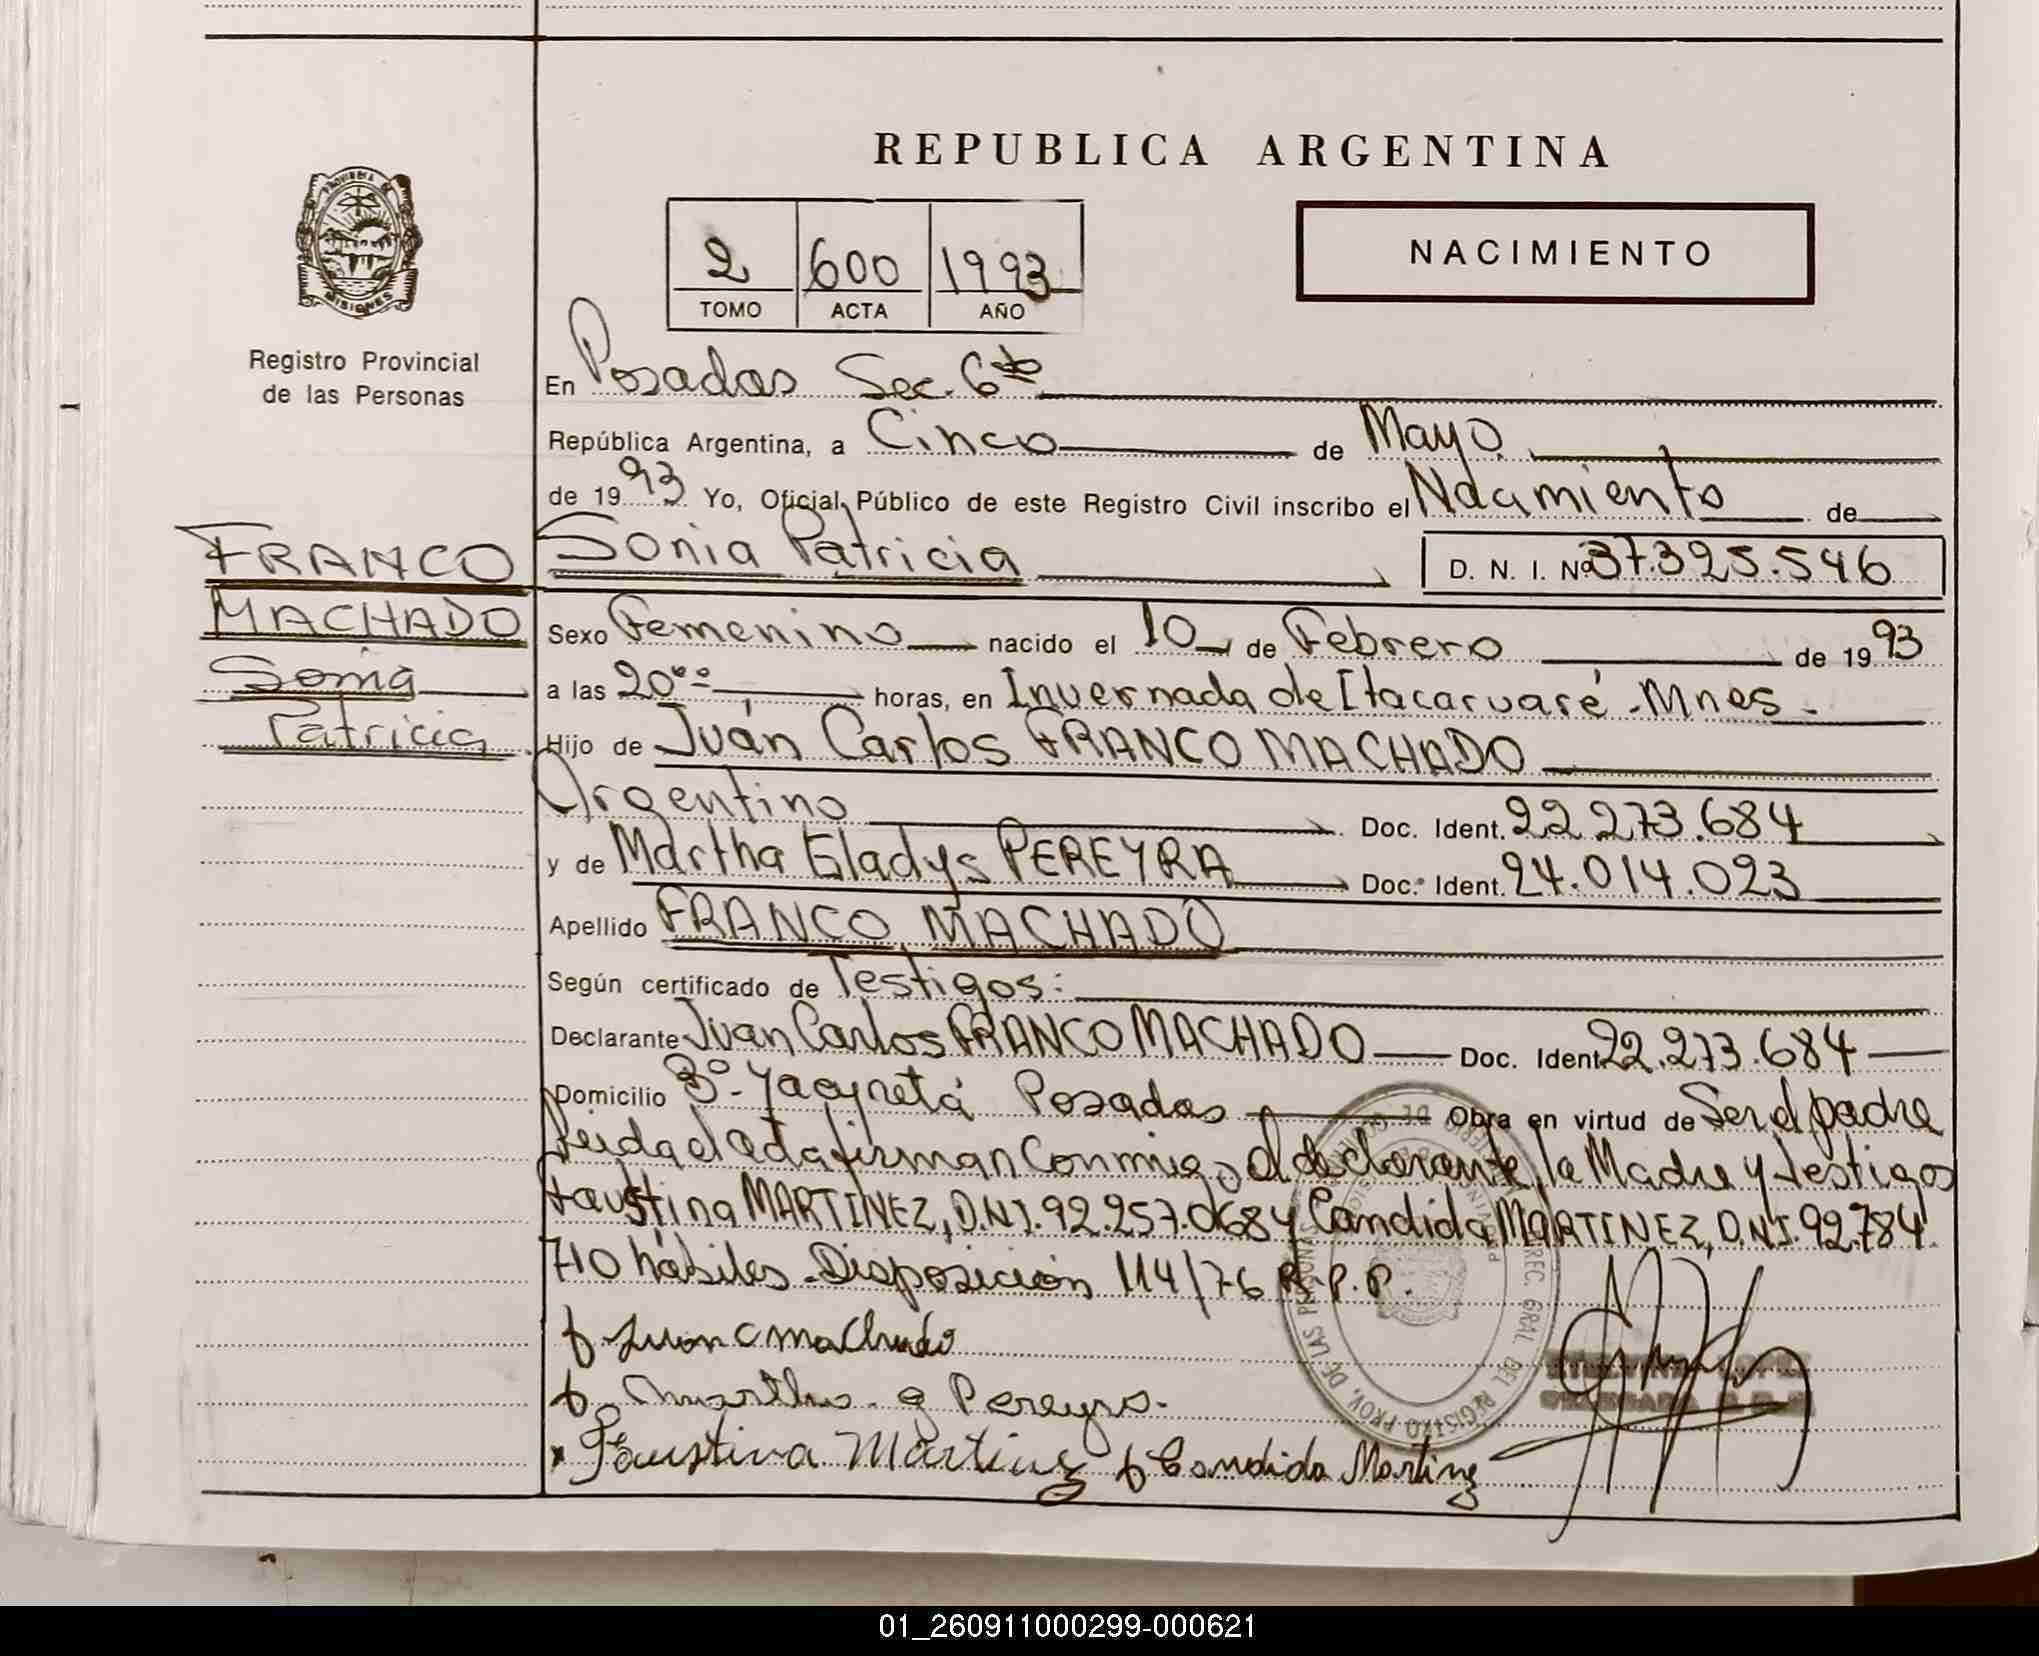 REPUBLICA ARGENTINA
PROVINCIA DE
MISIONES
Registro Provincial
de las Personas
2 600 1993
TOMO ACTA AÑO
NACIMIENTO
En Posadas Sec. 6ta
República Argentina, a Cinco de Mayo
de 1993 Yo, Oficial Público de este Registro Civil inscribo el Nacimiento de
FRANCO
MACHADO
Sonia
Patricia
Sonia Patricia D. N. I. Nº 37.325.546
Sexo Femenino nacido el 10 de Febrero de 1993
a las 20oo horas, en Invernada de Itacaruaré - Mnes.
Hijo de Juán Carlos FRANCO MACHADO
Argentino Doc. Ident. 22.273.684
y de Martha Gladys PEREYRA Doc. Ident. 24.014.023
Apellido FRANCO MACHADO
Según certificado de Testigos:
Declarante Juan Carlos FRANCO MACHADO Doc. Ident 22.273.684
Domicilio Bº- Yacyretá Posadas Obra en virtud de Ser el padre
Leida el acta firman Conmigo el declarante, la Madre y testigos
Faustina MARTINEZ, D.N.I. 92.257.068 y Candida MARTINEZ, D.N.I. 92.784.
710 hábiles - Disposición 114/76 R.P.P.
Juan C Machado
Martha g Pereyra.
Faustina Martinez Candida Martinez
01_260911000299-000621